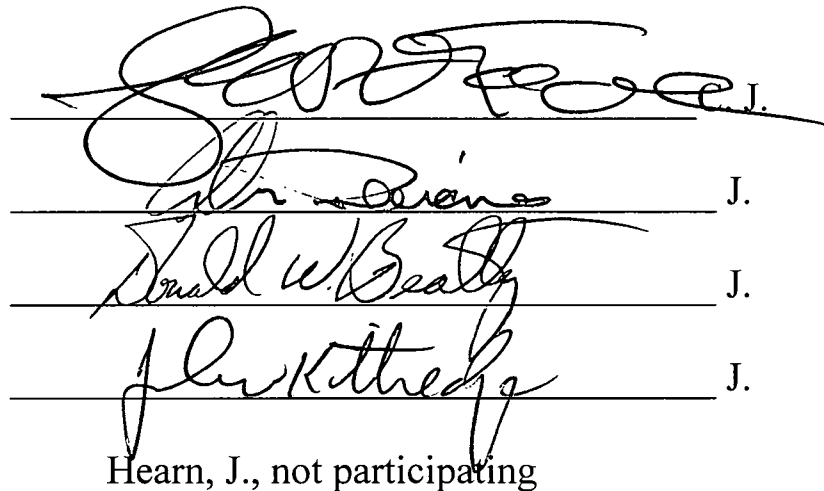 C.J.
J.
Donald W. Beatty J.
John Kittredge J.
Hearn, J., not participating